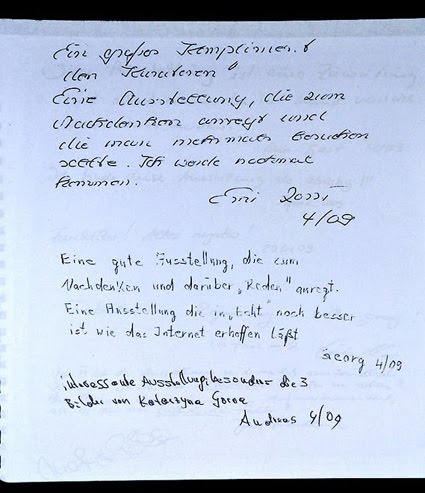 Ein großes Kompliment
den Kuratoren"
Eine Ausstellung, die zum
Nachdenken anregt und
die man mehrmals besuchen
sollte. Ich werde nochmal
kommen.
4/09
Eine gute Ausstellung, die zum
Nachdenken und darüber „Reden" anregt.
Eine Ausstellung die in „Echt" noch besser
ist wie das Internet erhoffen läßt
Georg 4/09
interessante Ausstellung, besonders die 3
Bilder von Katarzyna
Andreas 4/09